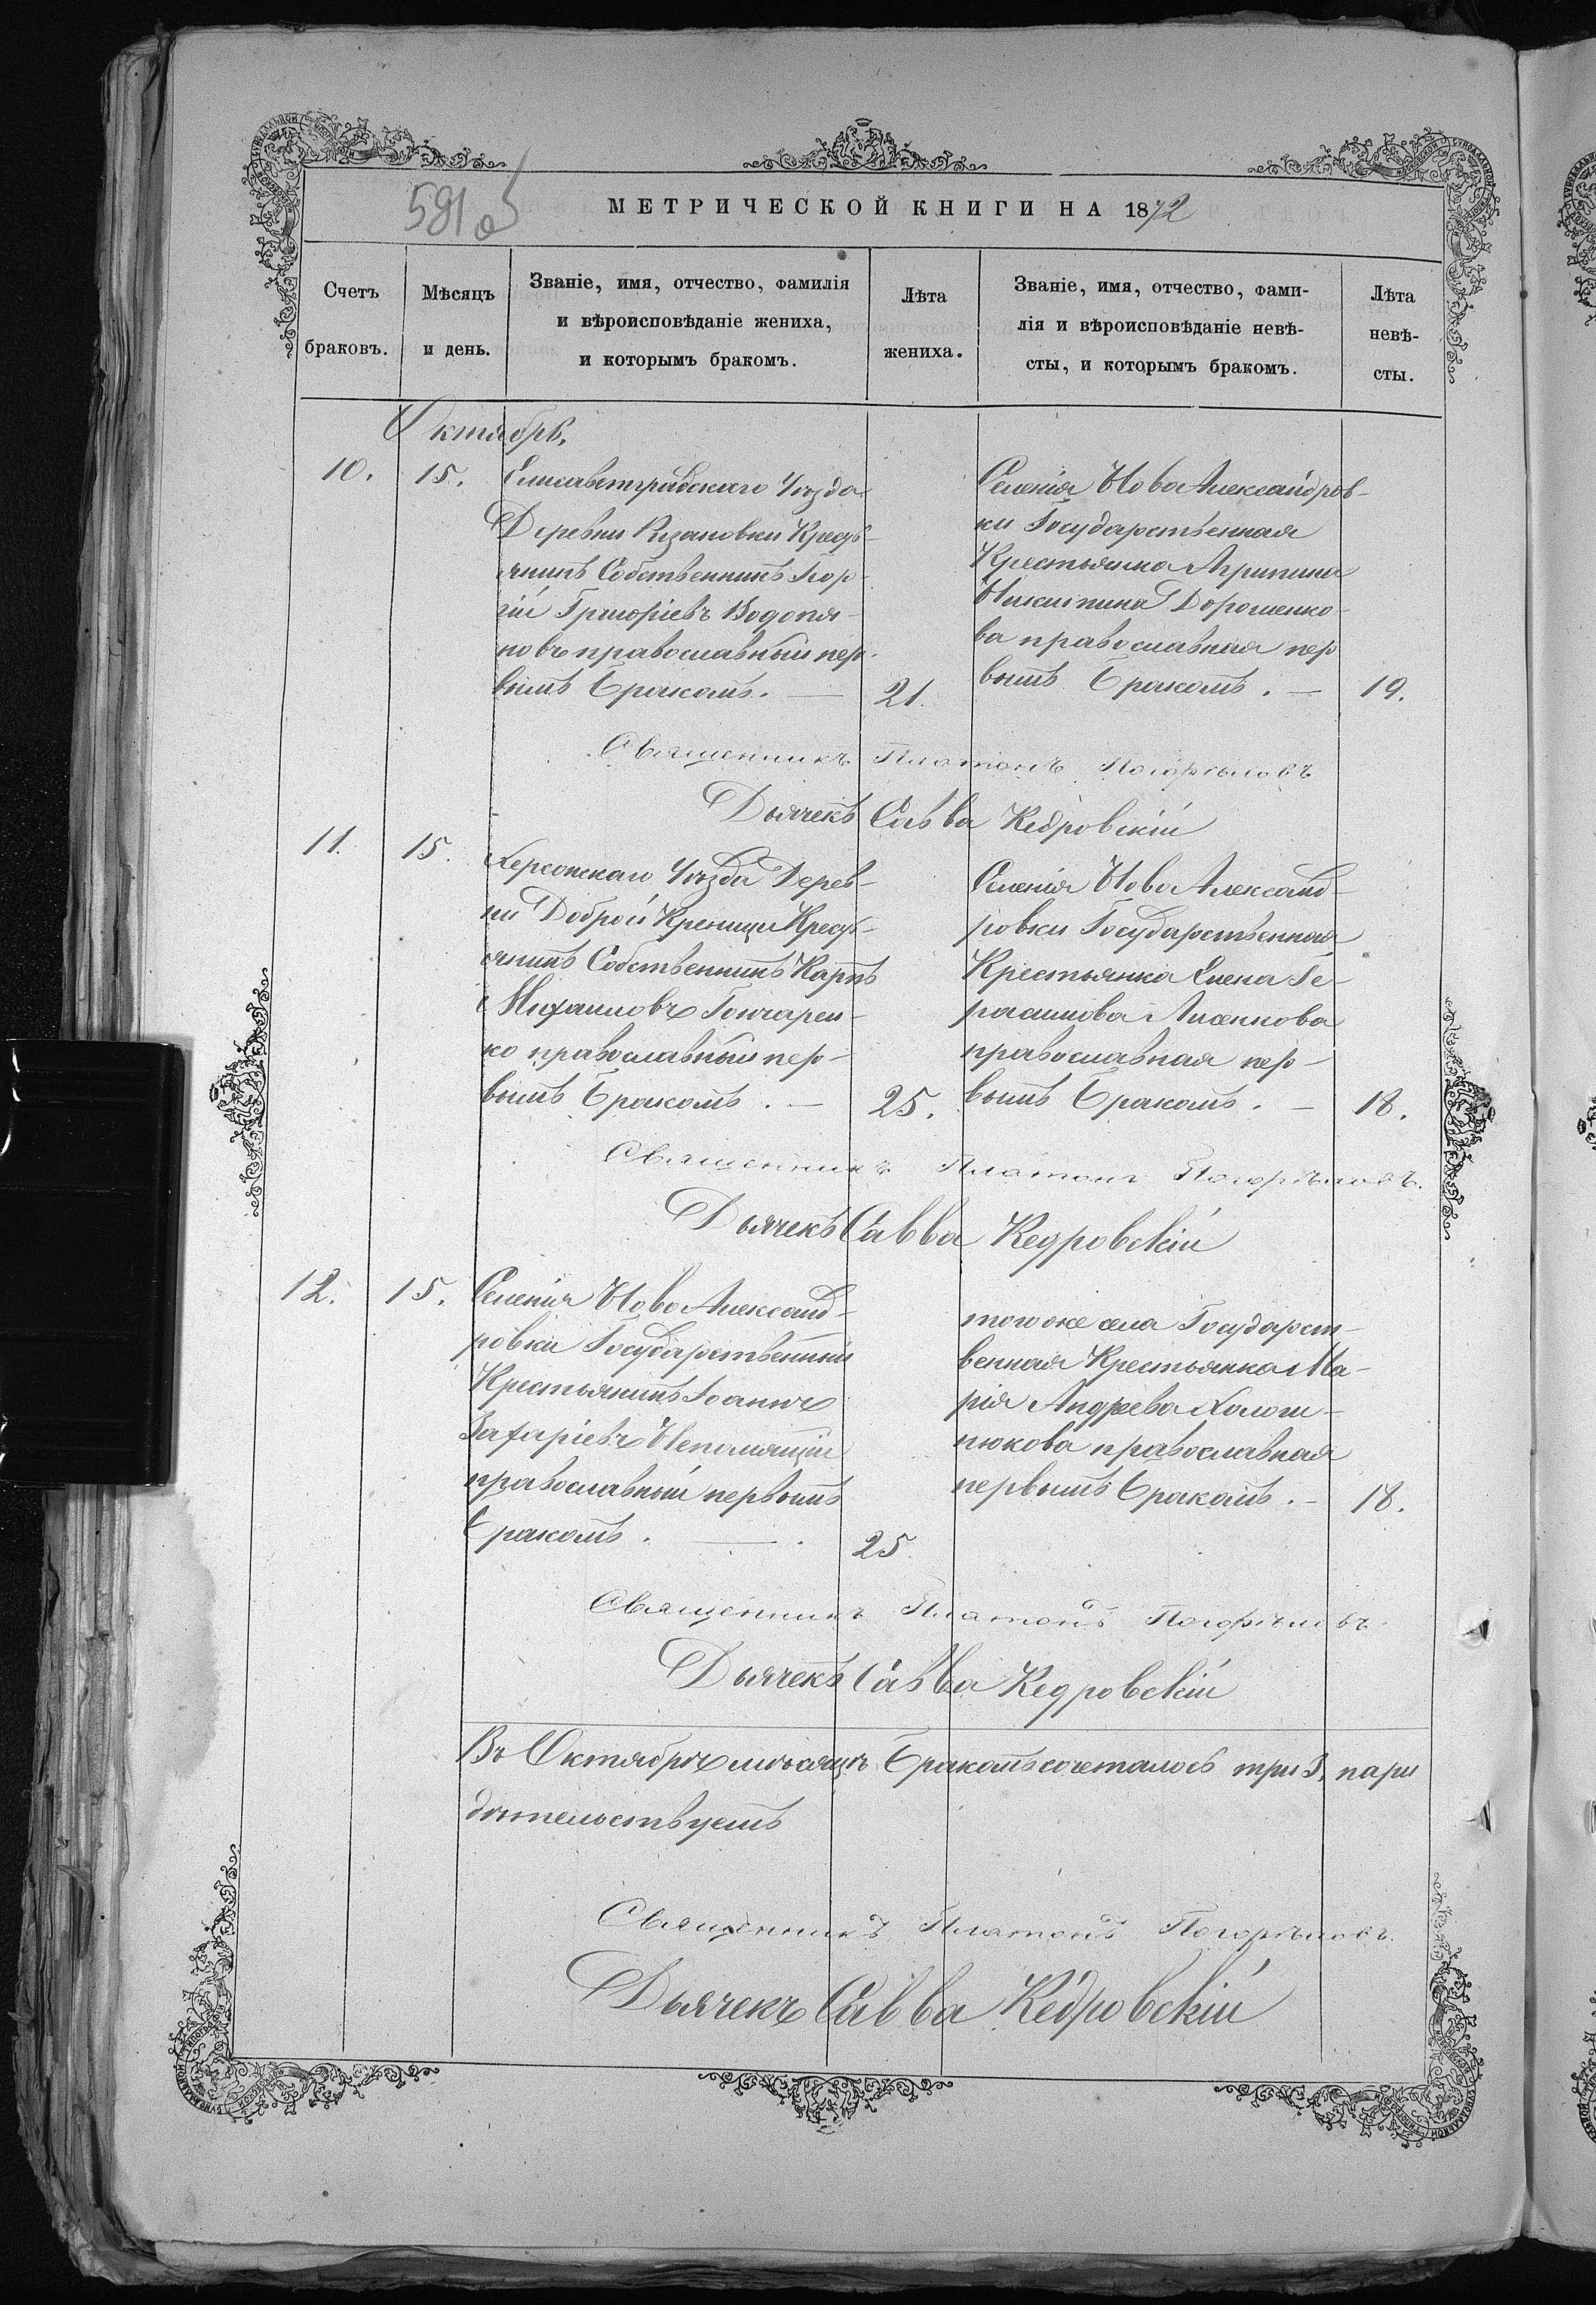 591 об
МЕТРИЧЕСКОЙ КНИГИ НА 1872
Счетъ браковъ.
Мѣсяцъ и день.
Званіе, имя, отчество, фамилія
и вѣроисповѣданіе жениха,
и которымъ бракомъ.
Лѣта жениха.
Званіе, имя, отчество, фами-
лія и вѣроисповѣданіе невѣ-
сты, и которымъ бракомъ.
Лѣта невѣ-
сты.
Октябрь,
10. 15.
Елисаветградскаго Уѣзда
Деревни Рузановки Кресть-
янинъ Собственникъ Геор-
гій Григоріевъ Водопья-
новъ православный пер-
вымъ бракомъ. — 21.
Селенія Ново Александров-
ки Государственная
Крестьянка Агрипина
Никитина Дорошенко-
ва православная пер
вымъ бракомъ. — 19.
Священникъ Платонъ Погорѣловъ
Дьячекъ Савва Кедровскій
11. 15.
Херсонскаго Уѣзда Дерев-
ни Доброй Креницы Кресть-
янинъ Собственникъ Карпъ
Михаиловъ Гончарен-
ко православный пер-
вымъ бракомъ. — 25.
Селенія Ново Александ-
ровки Государственная
Крестьянка Елена Ге-
расимова Лисенкова
православная пер-
вымъ бракомъ. — 18.
Священникъ Платонъ Погорѣловъ.
Дьячекъ Савва Кедровскій
12. 15.
Селенія Ново Александ-
ровки Государственный
Крестьянинъ Іоаннъ
Захаріевъ Непомящій
православный первымъ
бракомъ. — 25.
того же села Государст-
венная Крестьянка Ма-
рія Андреева
православная
первымъ бракомъ. — 18.
Священникъ Платонъ Погорѣловъ
Дьячекъ Савва Кедровскій
Въ Октябрѣ мѣсяцѣ бракомъ сочеталось три 3, пары
дѣтельствуетъ
Священникъ Платонъ Погорѣловъ.
Дьячекъ Савва Кедровскій